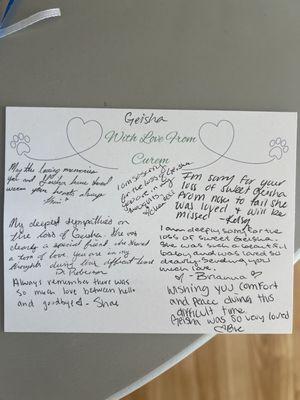 Geisha
With Love From
Curem
May the loving memories
you and Geisha have shared
warm your hearts always
I am so sorry
for the loss of Geisha
I'm so sorry for your
loss of sweet Geisha
From nose to tail she
was loved & will be
missed - Kelsey
My deepest sympathies on
the loss of Geisha. She was
clearly a special friend who shared
a lot of love. you are in my
thoughts during this difficult time
I am deeply sorry for the
loss of sweet Geisha.
She was such a beautiful
baby and was loved so
dearly. Sending you
much love.
- Brianna
Always remember there was
so much love between hello
and goodbye - Shae
Wishing you comfort
and peace during this
difficult time.
Geisha was so very loved